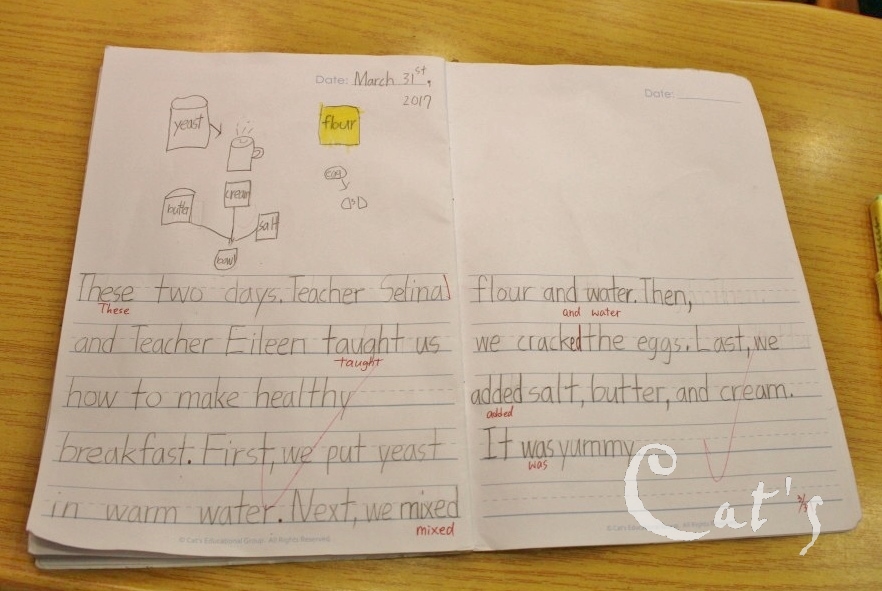 Date: March 31st,
2017
yeast
flour
egg
cream
butter
salt
bowl
These two days. Teacher Selina
These
and Teacher Eileen taught us
taught
how to make healthy
breakfast. First, we put yeast
in warm water. Next, we mixed
mixed
© Cat's Educational Group. All Rights Reserved.
Date:
flour and water. Then,
and water
we cracked the eggs. Last, we
added salt, butter, and cream.
added
It was yummy
was
Cat's